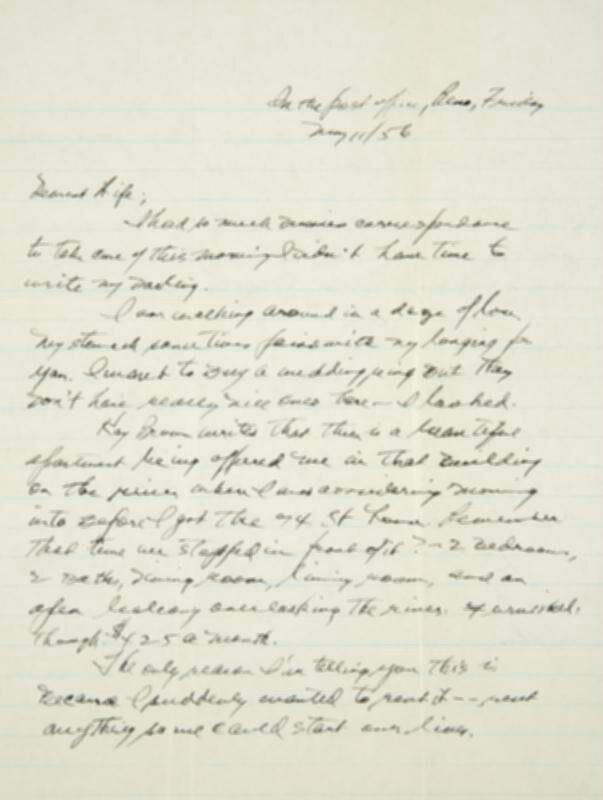 In the post office, Reno, Friday
May 11/56
Dearest Wife;
I had so much business correspondence
to take care of this morning I didn't have time to
write my darling.
I am walking around in a daze of love,
my stomach sometimes faint with my longing for
you. I want to buy a wedding ring but they
don't have really nice ones here — I looked.
Kay Brown writes that there is a beautiful
apartment being offered me in that building
on the river where I was considering moving
into before I got the 74 St house. Remember
that time we stopped in front of it? — 2 bedrooms,
2 baths, dining room, living room, and an
open balcony overlooking the river. Furnished,
though. $425 a month.
The only reason I'm telling you this is
because I suddenly wanted to rent it -- rent
anything so we could start our lives.